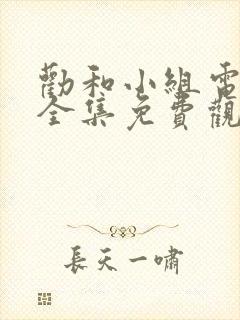 勸和小組電
全集免費觀
長天一嘯